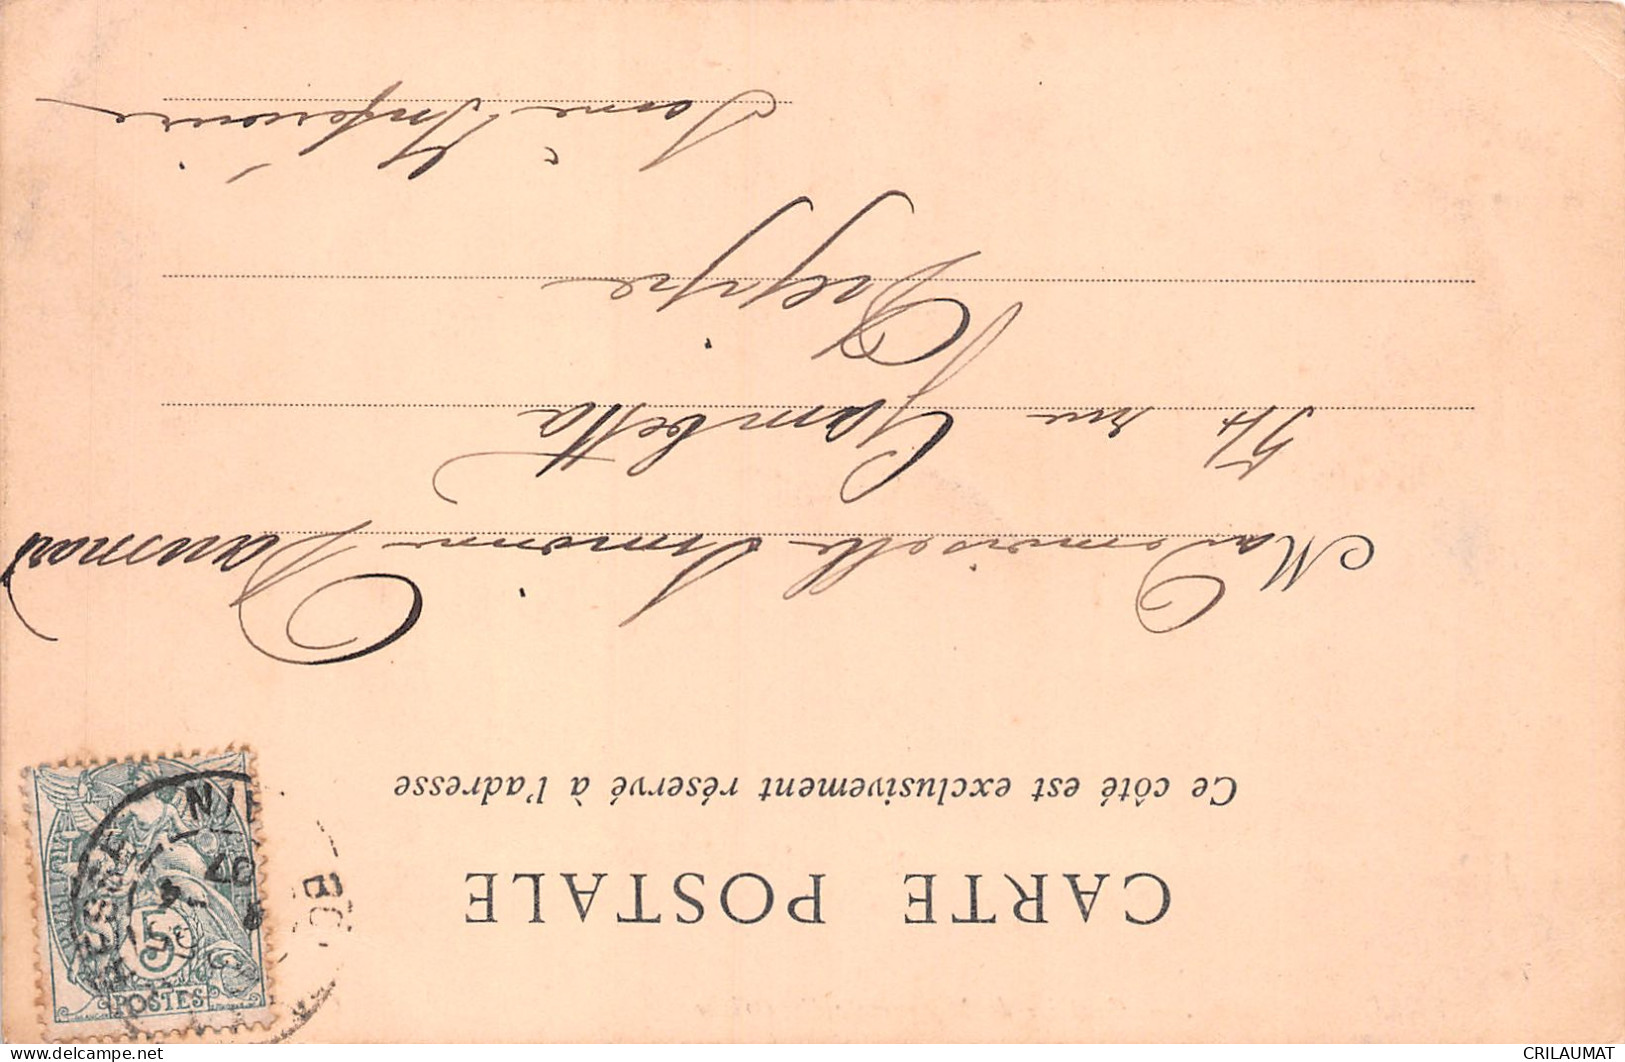 CARTE POSTALE
Ce côté est exclusivement réservé à l'adresse
Mademoiselle Simonne Daumard
54 rue Gambetta
Dieppe
Seine Inférieure
5
POSTES
07
CRILAUMAT